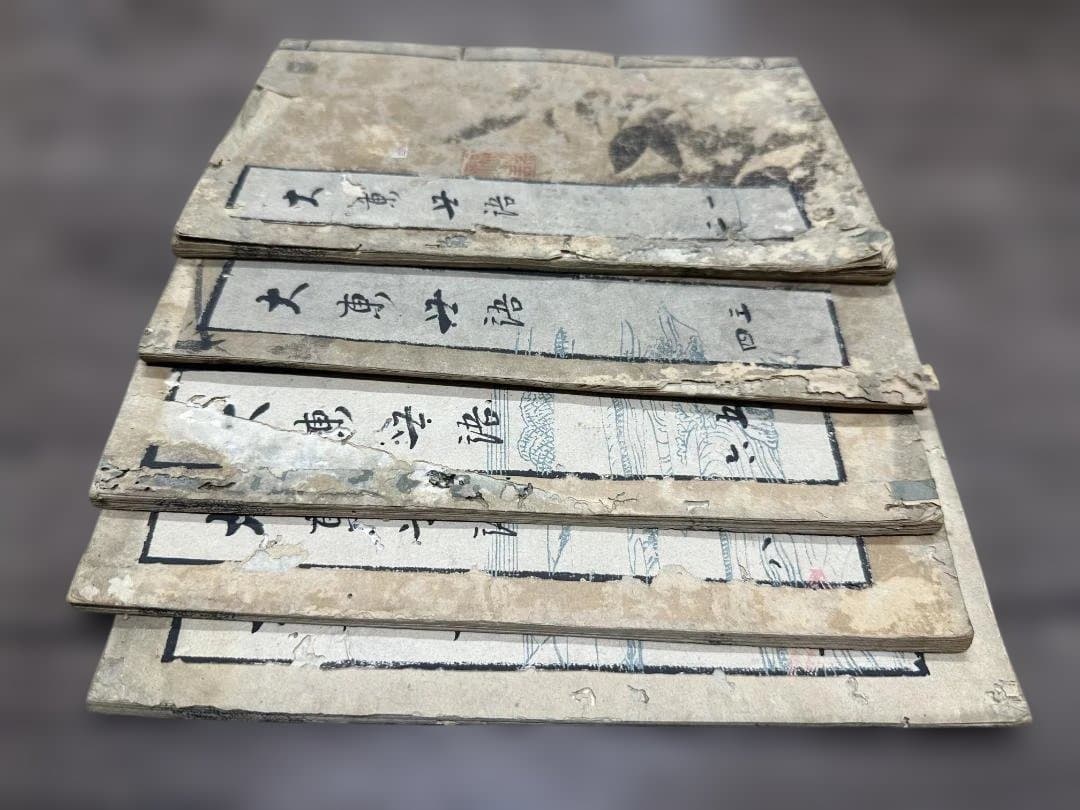 大東世語 一二
大東世語 三四
大東世語 五六
大東世語 八